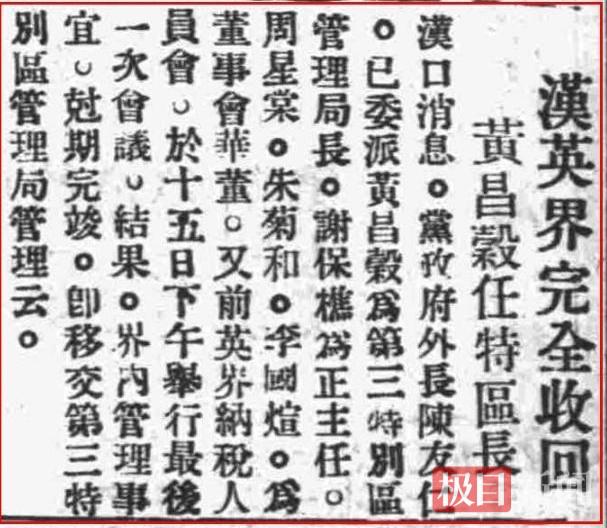 漢英界完全收回
黃昌穀任特區長
漢口消息。黨政府外長陳友仁
。已委派黃昌穀爲第三特別區
管理局長。謝保樵爲正主任。
周星棠。朱菊和。李國煊。爲
董事會華董。又前英界納稅人
員會。於十五日下午舉行最後
一次會議。結果。界內管理事
宜。尅期完竣。卽移交第三特
別區管理局管理云。
極目新闻